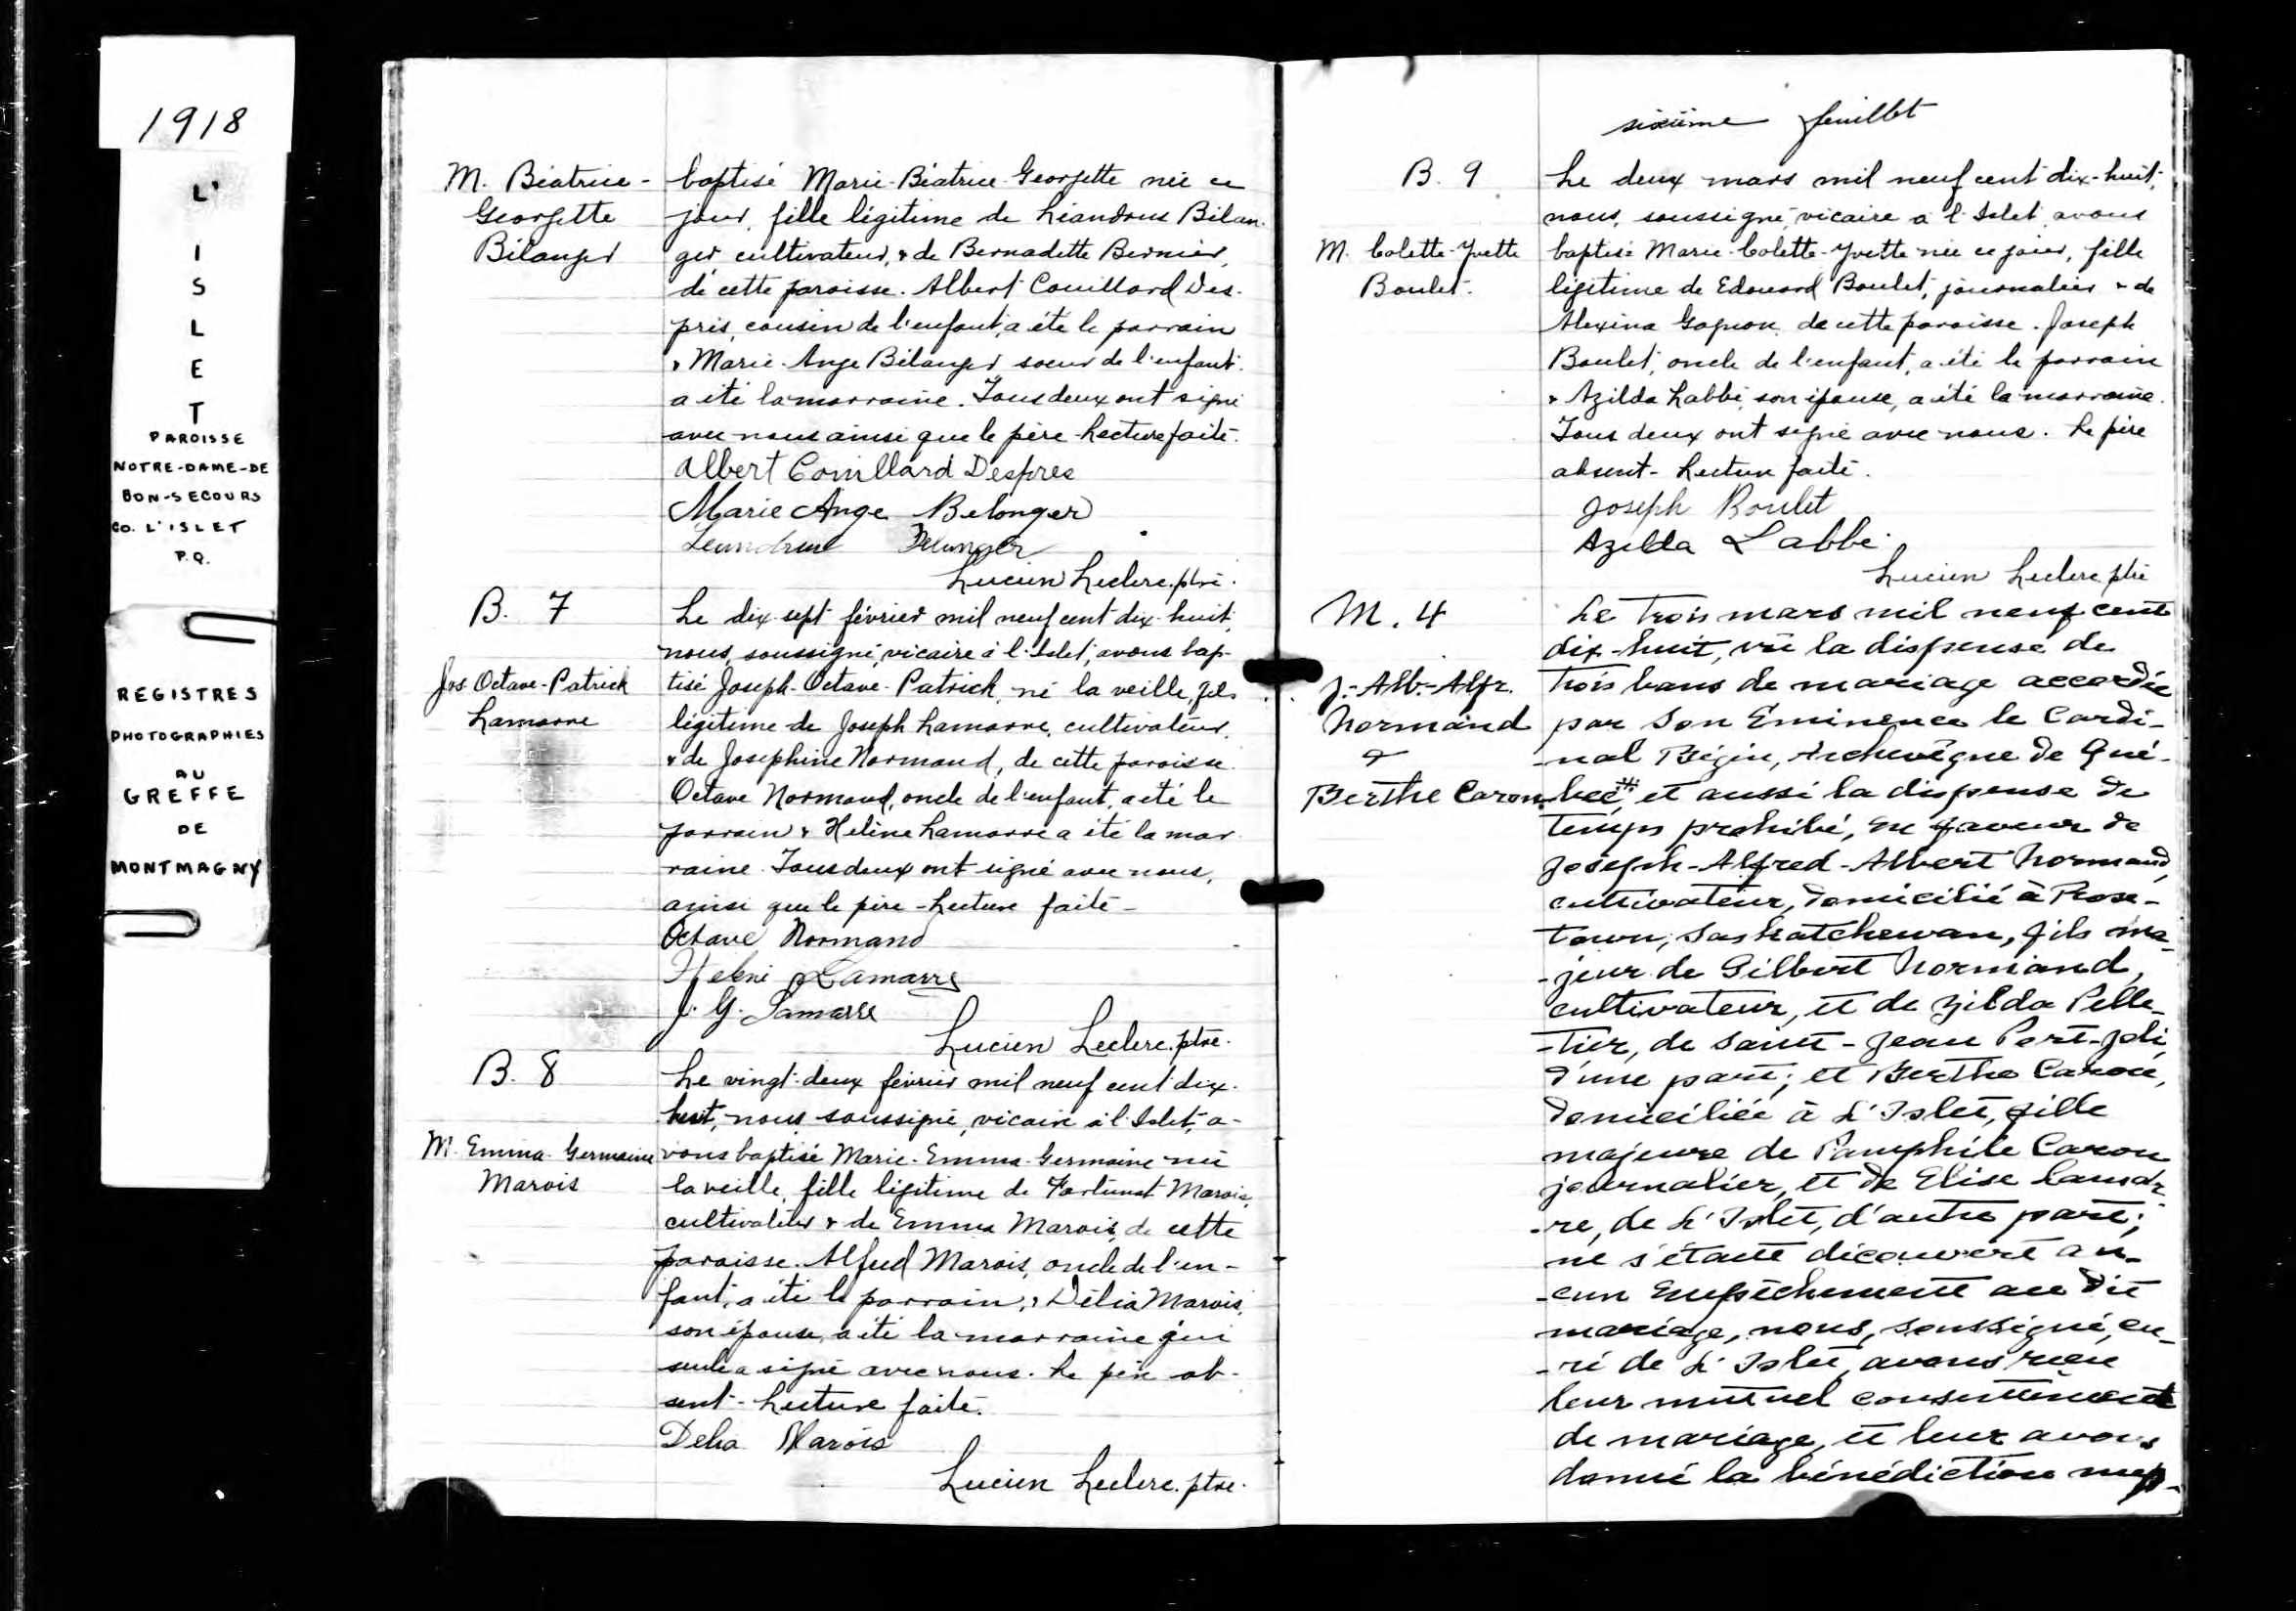 1918
L'
I
S
L
E
T
PAROISSE
NOTRE-DAME-DE
BON-SECOURS
CO. L'ISLET
P.Q.
REGISTRES
PHOTOGRAPHIES
AU
GREFFE
DE
MONTMAGNY
M. Béatrice-
Georgette
Bélanger
baptisé Marie-Béatrice-Georgette née ce
jour, fille légitime de Léandrus Bélan-
ger cultivateur, & de Bernadette Bernier,
de cette paroisse. Albert Couillard Des-
prés, cousin de l'enfant, a été le parrain
& Marie-Ange Bélanger soeur de l'enfant
a été la marraine. Tous deux ont signé
avec nous ainsi que le père - Lecture faite.
Albert Couillard Despres
Marie Ange Belanger
Leandrus Belanger
Lucien Leclerc, ptre.
B. 7
Jos-Octave-Patrick
Lamarre
Le dix-sept février mil neuf cent dix-huit,
nous, soussigné, vicaire à l'Islet, avons bap-
tisé Joseph-Octave-Patrick, né la veille, fils
légitime de Joseph Lamarre, cultivateur,
& de Josephine Normand, de cette paroisse.
Octave Normand, oncle de l'enfant, a été le
parrain & Hélène Lamarre a été la mar
raine. Tous deux ont signé avec nous,
ainsi que le père - Lecture faite -
Octave Normand
Lamarre
J. G. Lamarre
Lucien Leclerc, ptre.
B. 8
M. Emma-Germaine
Marois
Le vingt-deux février mil neuf cent dix-
huit, nous soussigné, vicaire à l'Islet, a-
vons baptisé Marie-Emma-Germaine née
la veille, fille légitime de Fortunat Marois,
cultivateur & de Emma Marois, de cette
paroisse. Alfred Marois, oncle de l'en-
fant, a été le parrain, & Délia Marois,
son épouse, a été la marraine qui
seule a signé avec nous. Le père ab-
sent - Lecture faite.
Delia Marois
Lucien Leclerc, ptre.
sixième feuillet
B. 9
M. Colette-Yvette
Boulet.
Le deux mars mil neuf cent dix-huit,
nous, soussigné, vicaire à l'Islet avons
baptisé Marie-Colette-Yvette née ce jour, fille
légitime de Edouard Boulet, journalier & de
Alexina Gagnon, de cette paroisse. Joseph
Boulet, oncle de l'enfant, a été le parrain
& Azilda Labbé, son épouse, a été la marraine.
Tous deux ont signé avec nous. Le père
absent - Lecture faite.
Joseph Boulet
Azilda Labbé
Lucien Leclerc, ptre
M. 4
J.-Alb.-Alfr.
Normand
&
Berthe Caron
Le trois mars mil neuf cent
dix-huit, vu la dispense de
trois bans de mariage accordée
par Son Éminence le Cardi-
-nal Bégin, Archevêque de Qué-
bec, et aussi la dispense de
temps prohibé, en faveur de
Joseph-Alfred-Albert Normand,
cultivateur, domicilié à Rose-
town, Saskatchewan, fils ma-
-jeur de Gilbert Normand,
cultivateur, et de Zilda Pelle-
-tier, de Saint-Jean Port-Joli,
d'une part; et Berthe Caron,
domiciliée à L'Islet, fille
majeure de Pamphile Caron
journalier, et de Elise Lamar
-re, de L'Islet, d'autre part;
ne s'étant découvert au-
-cun empêchement au dit
mariage, nous, soussigné, cu-
-ré de L'Islet, avons reçu
leur mutuel consentement
de mariage, et leur avons
donné la bénédiction nup-